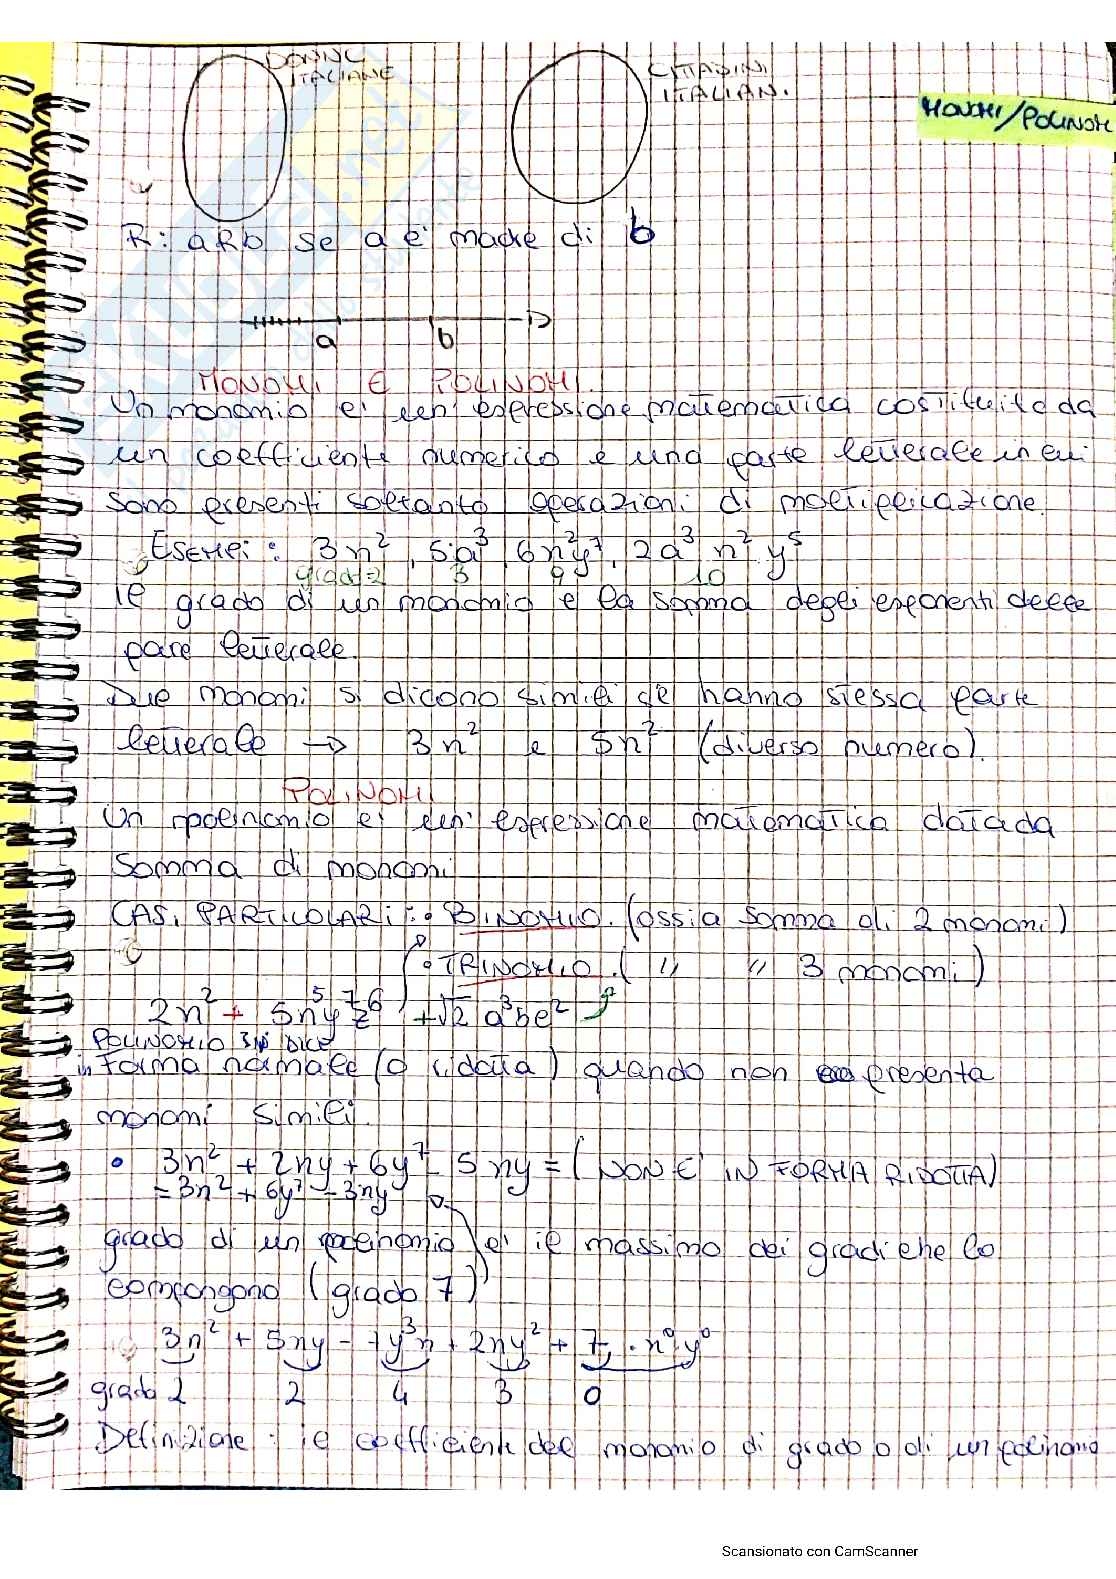 DONNE
ITALIANE
CITTADINI
ITALIANI
MONOMI/POLINOM
R: aRb se a è madre di b
a b
MONOMI E POLINOMI.
Un monomio e' un' espressione matematica costituita da
un coefficiente numerico e una parte letterale in cui
sono presenti soltanto operazioni di moltiplicazione.
ESEMPI: 3x², 5a³, 6x²y⁷, 2a³x²y⁵
grado=2 3 9 10
il grado di un monomio e la somma degli esponenti delle
pare letterale.
Due monomi si dicono simili se hanno stessa parte
letterale → 3x² e 5x² (diverso numero).
POLINOMI
Un polinomio e' un' espressione matematica data da
somma di monomi
CASI PARTICOLARI: • BINOMIO. (ossia somma di 2 monomi)
• TRINOMIO. ( " " 3 monomi)
2x² + 5xy⁵z⁷⁶ +√2 a³bc²
POLINOMIO SI DICE
in forma normale (o ridotta) quando non presenta
monomi simili.
• 3x² + 2xy + 6y⁷ - 5xy = (NON E' IN FORMA RIDOTTA)
= 3x² + 6y⁷ - 3xy
grado di un polinomio e' il massimo dei gradi che lo
compongono (grado 7)
3x² + 5xy - 7y³x + 2xy² + 7 · x⁰y⁰
grado 2 2 4 3 0
Definizione: il coefficiente del monomio di grado 0 di un polinomio
Scansionato con CamScanner